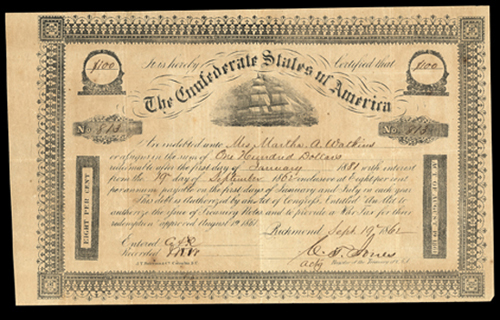 It is hereby Certified that
$100
$100
The Confederate States of America
No 813
No 813
Are indebted unto Mrs Martha A. Watkins
or assigns in the sum of One Hundred Dollars
redeemable after the first day of January 1881 with interest
from 19 day of September 1862 inclusive at Eight per cent
per annum payable on the first days of January and July in each year
This debt is Authorized by an Act of Congress, Entitled An Act to
authorize the issue of Treasury Notes, and to provide a War Tax for their
redemption approved August 19th 1861.
Richmond Sept 19 1862
Entered
Recorded
C. T. Jones
actg Register of the Treasury C.S.
EIGHT PER CENT
EIGHT PER CENT